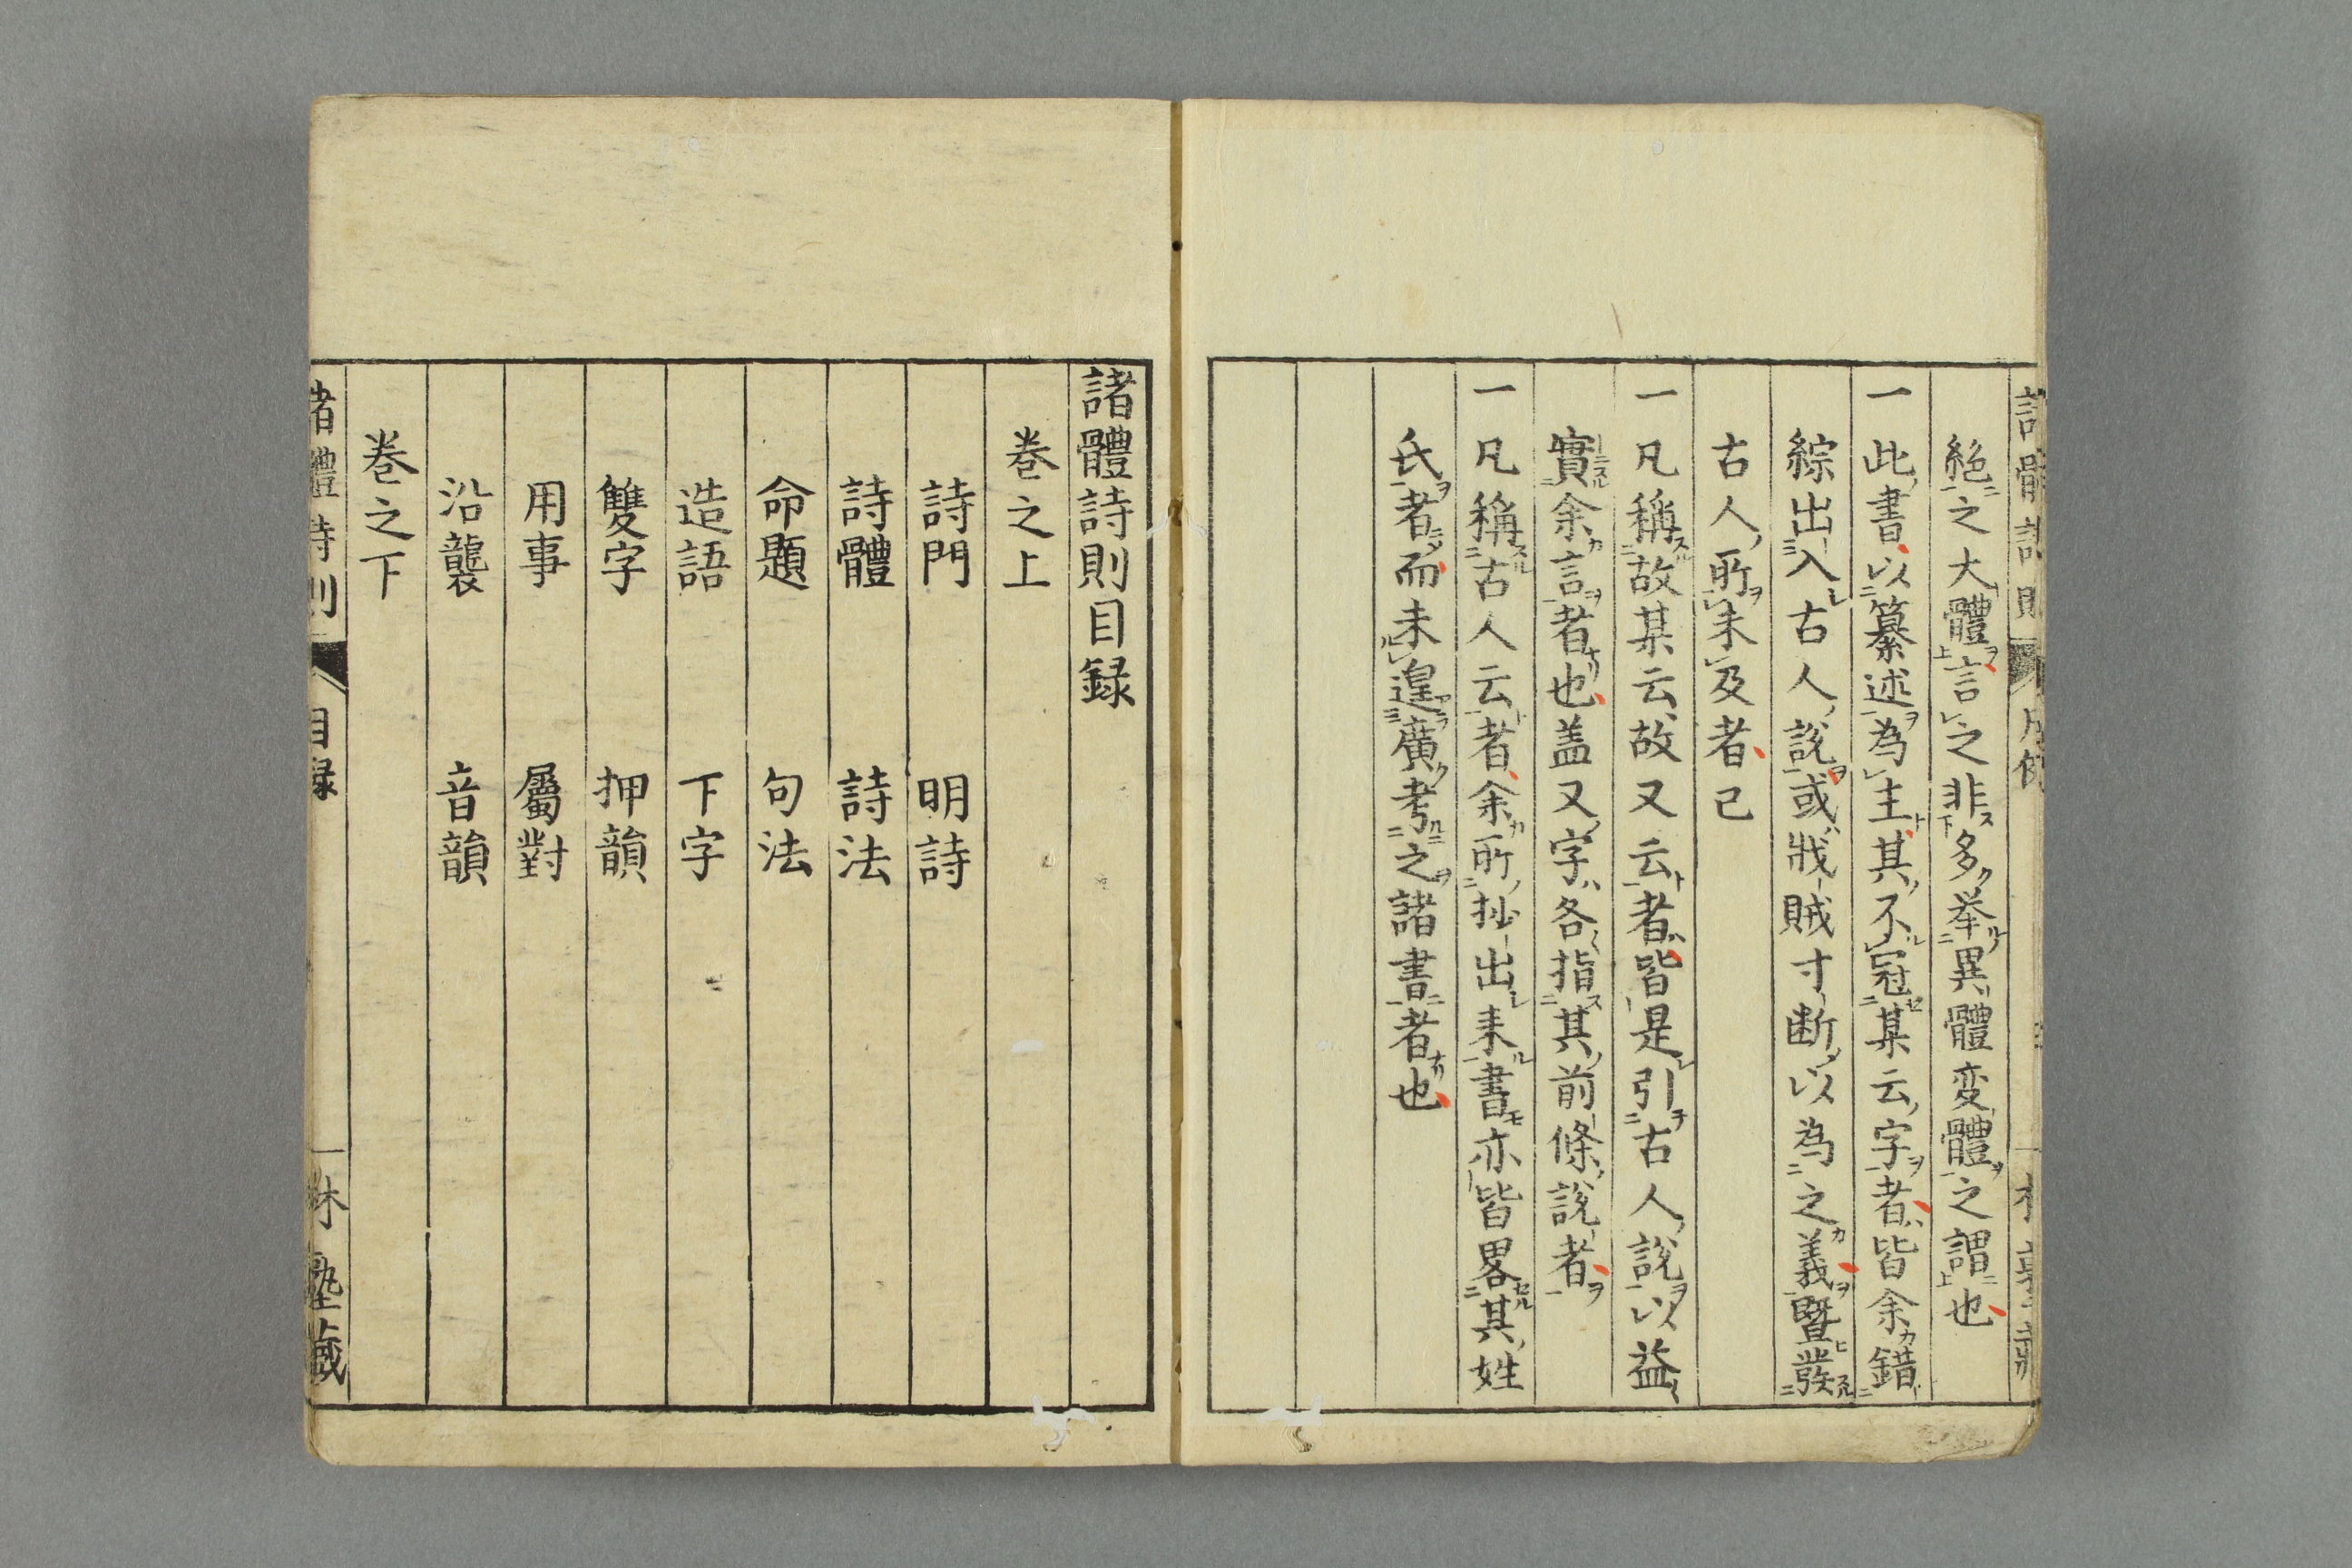 絶之大體言之非多举異體変體之謂也
一此書以纂述為主其不冠某云字者皆余錯
綜出入古人說或戕賊寸断以為之義暨發
古人所未及者已
一凡稱故某云故又云者皆是引古人說以益
實余言者也盖又字各指其前條說者
一凡稱古人云者余所抄出耒書亦皆畧其姓
氏者而未遑廣考之諸書者也
諸體詩則目録
巻之上
詩門 明詩
詩體 詩法
命題 句法
造語 下字
雙字 押韻
用事 屬對
沿襲 音韻
巻之下
諸體詩則 目録 一 林塾藏